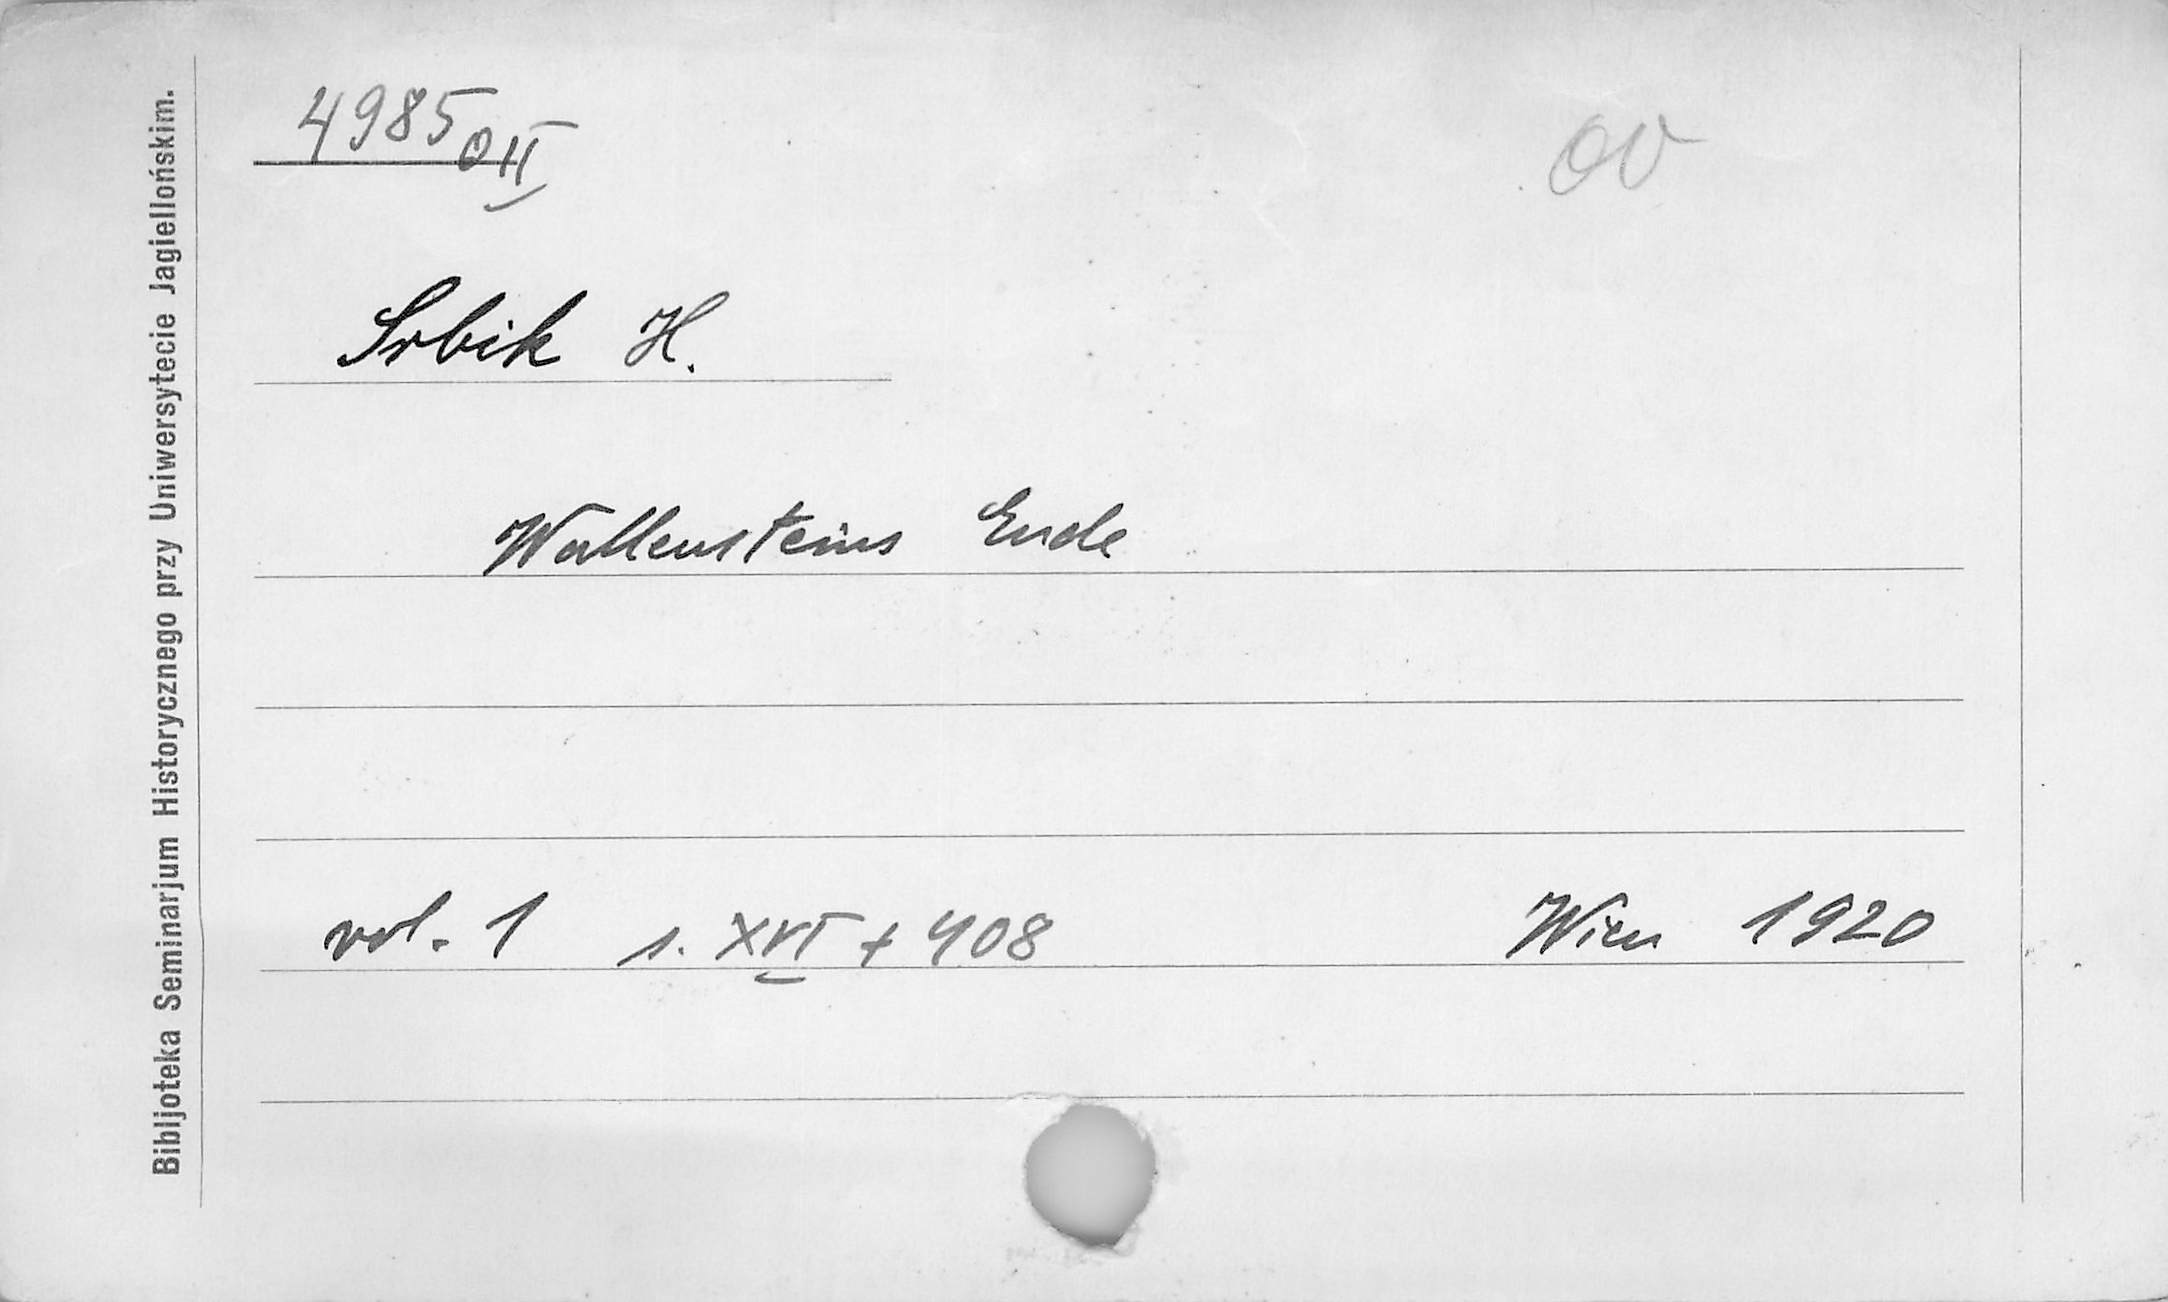 4985 OII
OV
Srbik H.
Wallensteins Ende
vol. 1 s. XVI + 408 Wien 1920
Bibljoteka Seminarjum Historycznego przy Uniwersytecie Jagiellońskim.